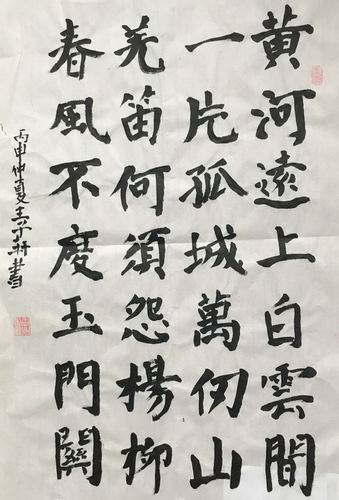 黄河遠上白雲間
一片孤城萬仞山
羌笛何須怨楊柳
春風不度玉門關
丙申仲夏
書